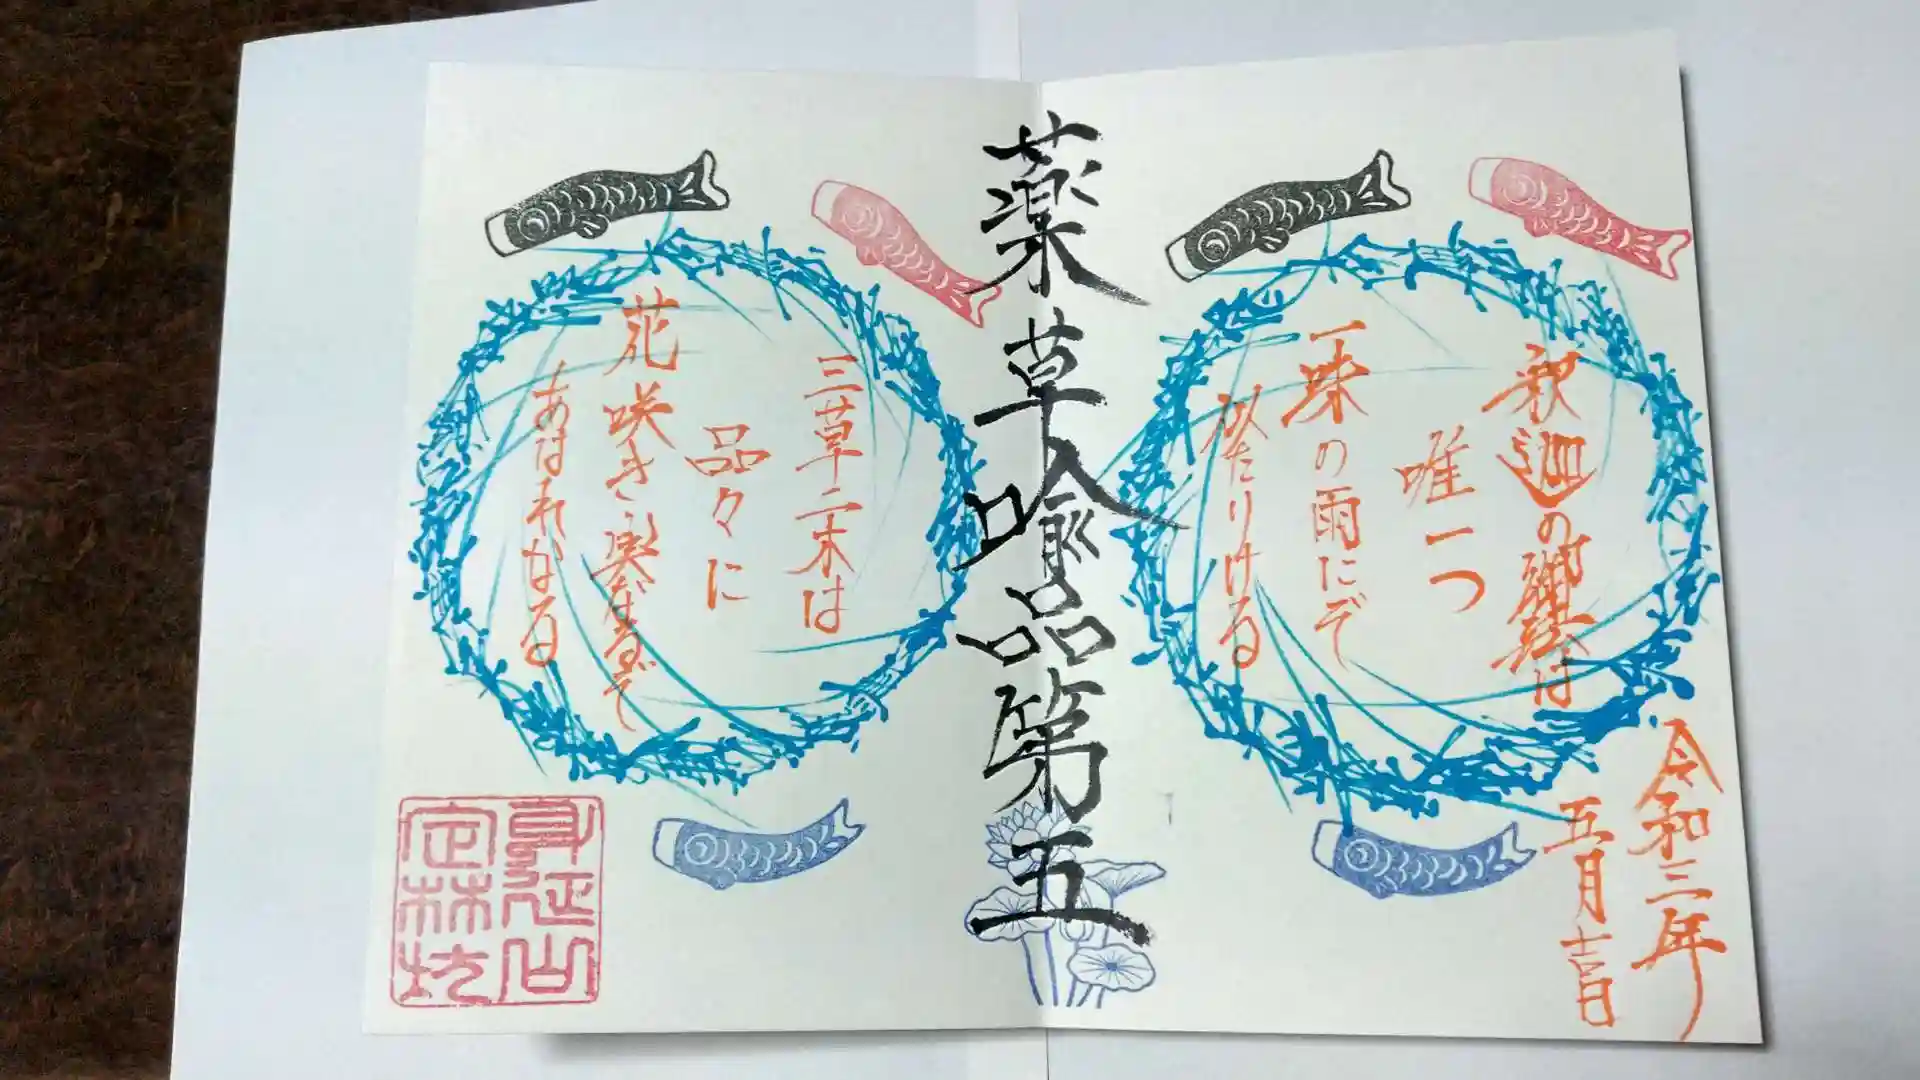 令和三年
五月吉日
釈迦の御経は
唯一つ
一味の雨にぞ
似たりける
薬草喩品第五
三草二木は
品々に
花咲き実なるぞ
あはれなる
身延山
定林坊